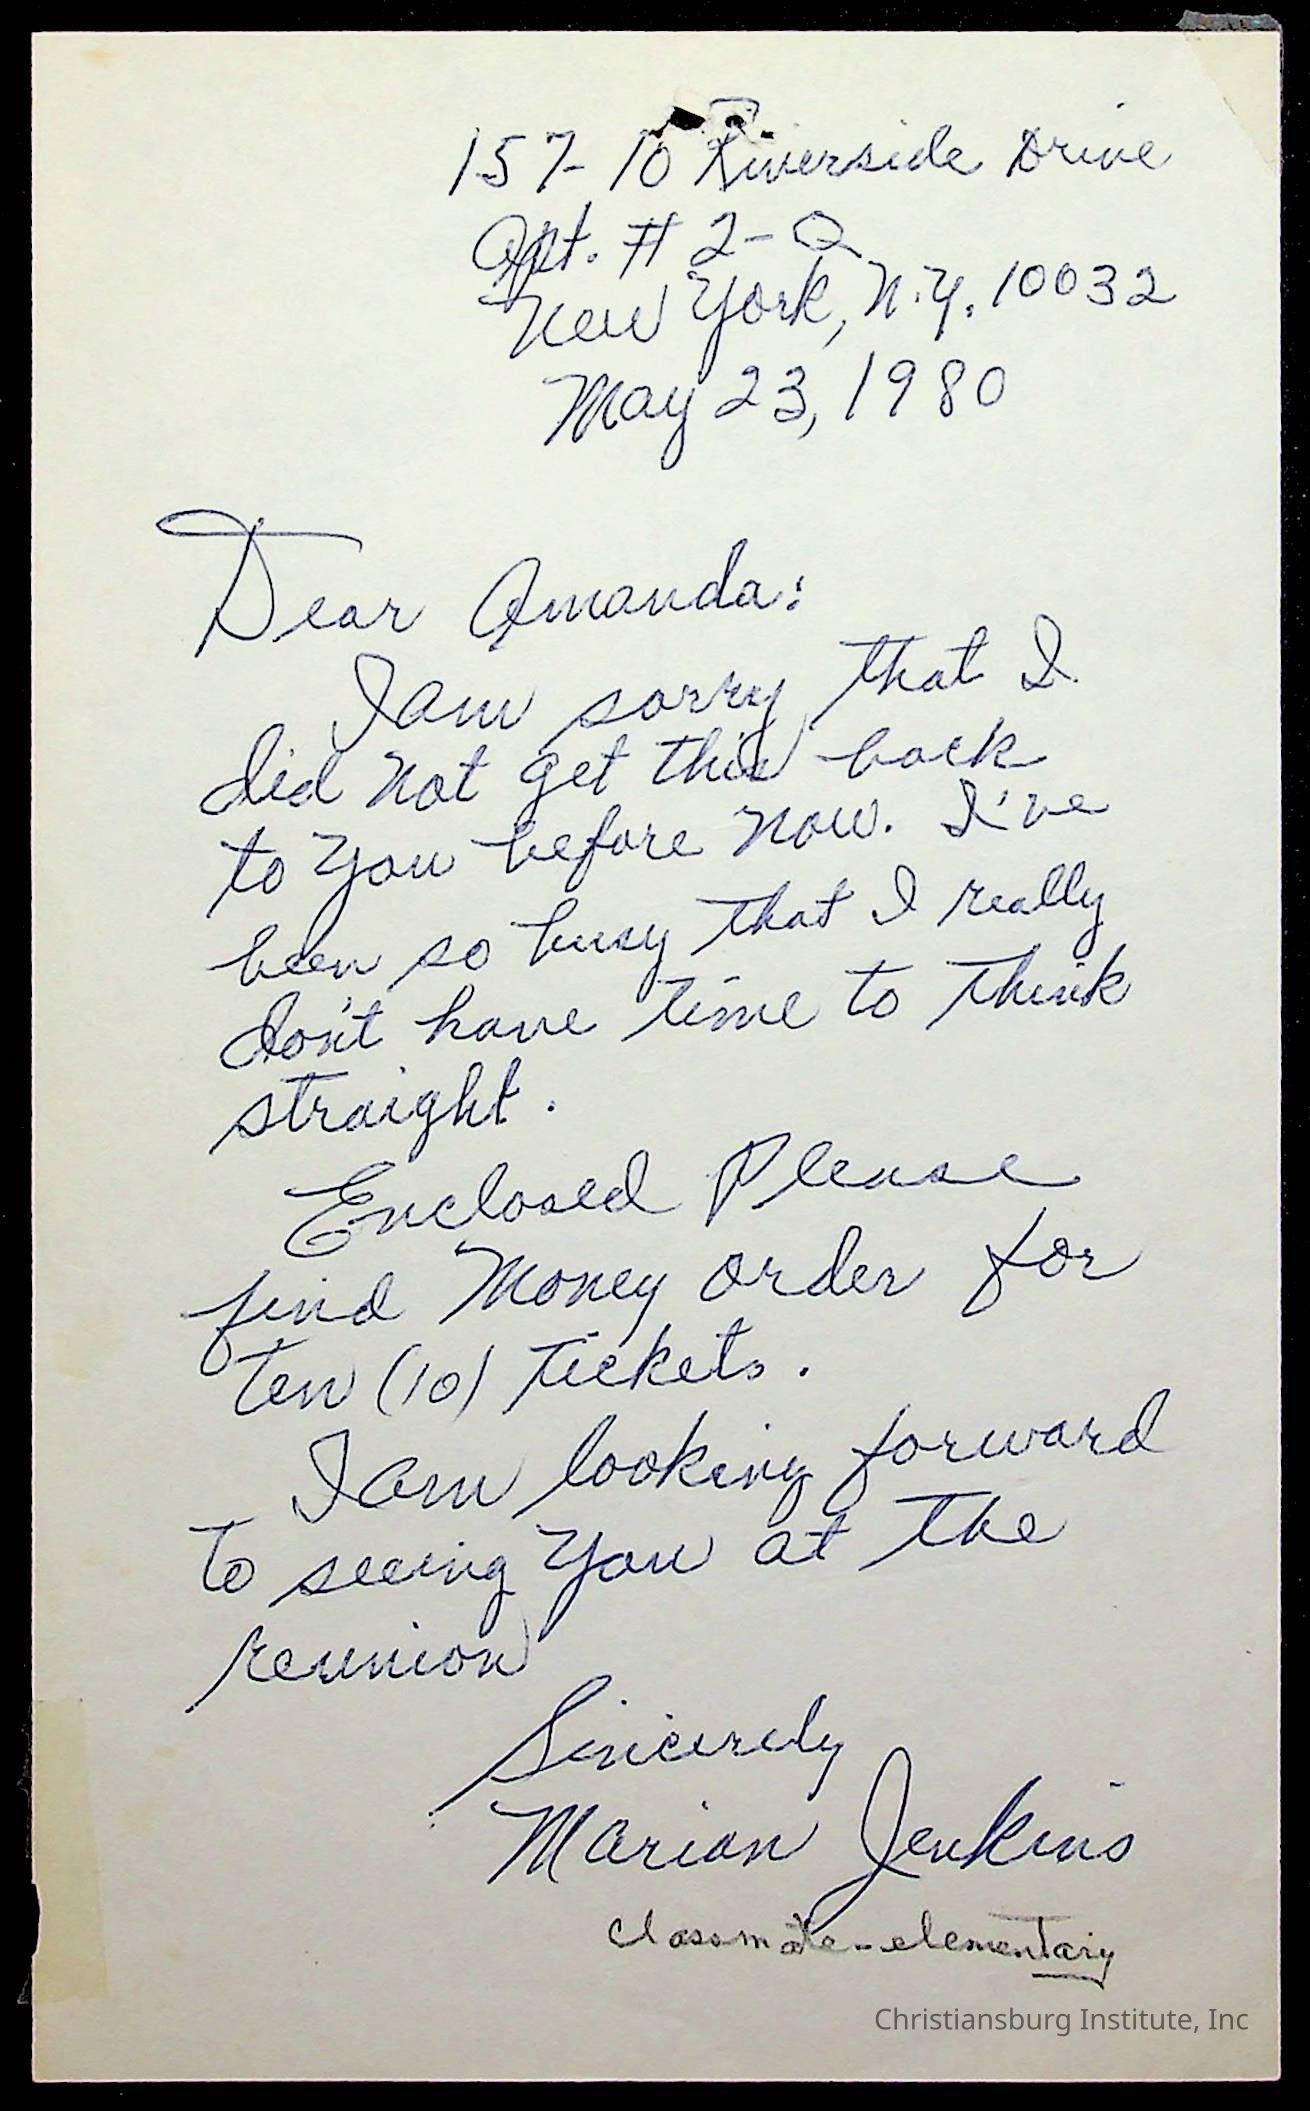 157-10 Riverside Drive
Apt. # 2-Q
New York, N.Y. 10032
May 23, 1980
Dear Amanda:
I am sorry that I
did not get this back
to you before now. I've
been so busy that I really
don't have time to think
straight.
Enclosed Please
find Money order for
ten (10) Tickets.
I am looking forward
to seeing you at the
reunion
Sincerely
Marion Jenkins
classmate - elementary
Christiansburg Institute, Inc